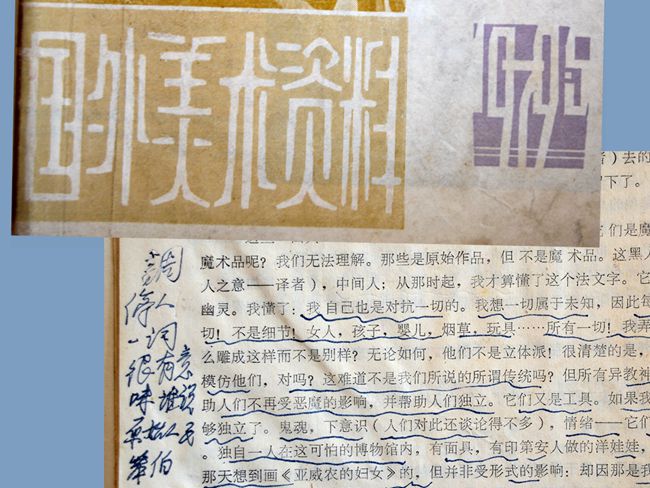 国外美术资料
1979
者）去的
下了。
们是魔
魔术品呢？我们无法理解。那些是原始作品，但不是魔术品。这黑人
人之意——译者），中间人；从那时起，我才算懂了这个法文字。它
幽灵。我懂了：我自己也是对抗一切的。我想一切属于未知，因此每
切！不是细节！女人，孩子，婴儿，烟草，玩具……所有一切！我弄
么雕成这样而不是别样？无论如何，他们不是立体派！很清楚的是，
模仿他们，对吗？这难道不是我们所说的所谓传统吗？但所有异教神
助人们不再受恶魔的影响，并帮助人们独立。它们又是工具。如果我
够独立了。鬼魂，下意识（人们对此还谈论得不多），情绪——它们
。独自一人在这可怕的博物馆内，有面具，有印第安人做的洋娃娃，
那天想到画《亚威农的妇女》的，但并非受形式的影响：却因那是我
调
停人
一词
很有意
味谁说
原始人民
笨伯